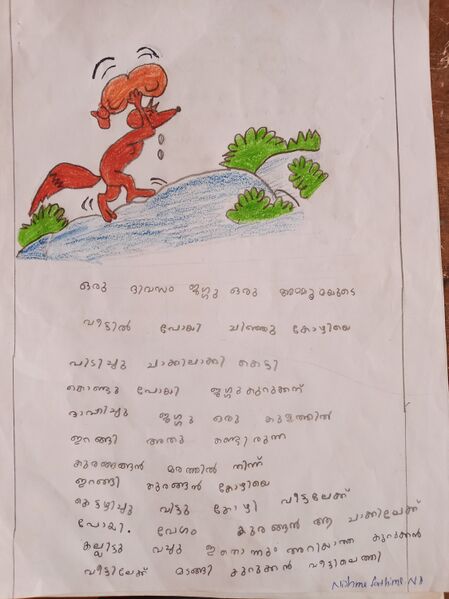 ഒരു ദിവസം ജഗ്ഗു ഒരു അമ്മൂമ്മയുടെ
വീട്ടിൽ പോയി ചിഞ്ചു കോഴിയെ
പിടിച്ചു ചാക്കിലാക്കി കെട്ടി
കൊണ്ടു പോയി ജഗ്ഗുകുറുക്കന്
ദാഹിച്ചു ജഗ്ഗു ഒരു കുളത്തിൽ
ഇറങ്ങി അതു കണ്ടിരുന്ന
കുരങ്ങൻ മരത്തിൽ നിന്ന്
ഇറങ്ങി കുരങ്ങൻ കോഴിയെ
കെട്ടഴിച്ചു വിട്ടു കോഴി വീട്ടിലേക്ക്
പോയി. വേഗം കുരങ്ങൻ ആ ചാക്കിലേക്ക്
കല്ലിട്ടു വച്ചു ഇതൊന്നും അറിയാത്ത കുറുക്കൻ
വീട്ടിലേക്ക് മടങ്ങി കുറുക്കൻ വീട്ടിലെത്തി